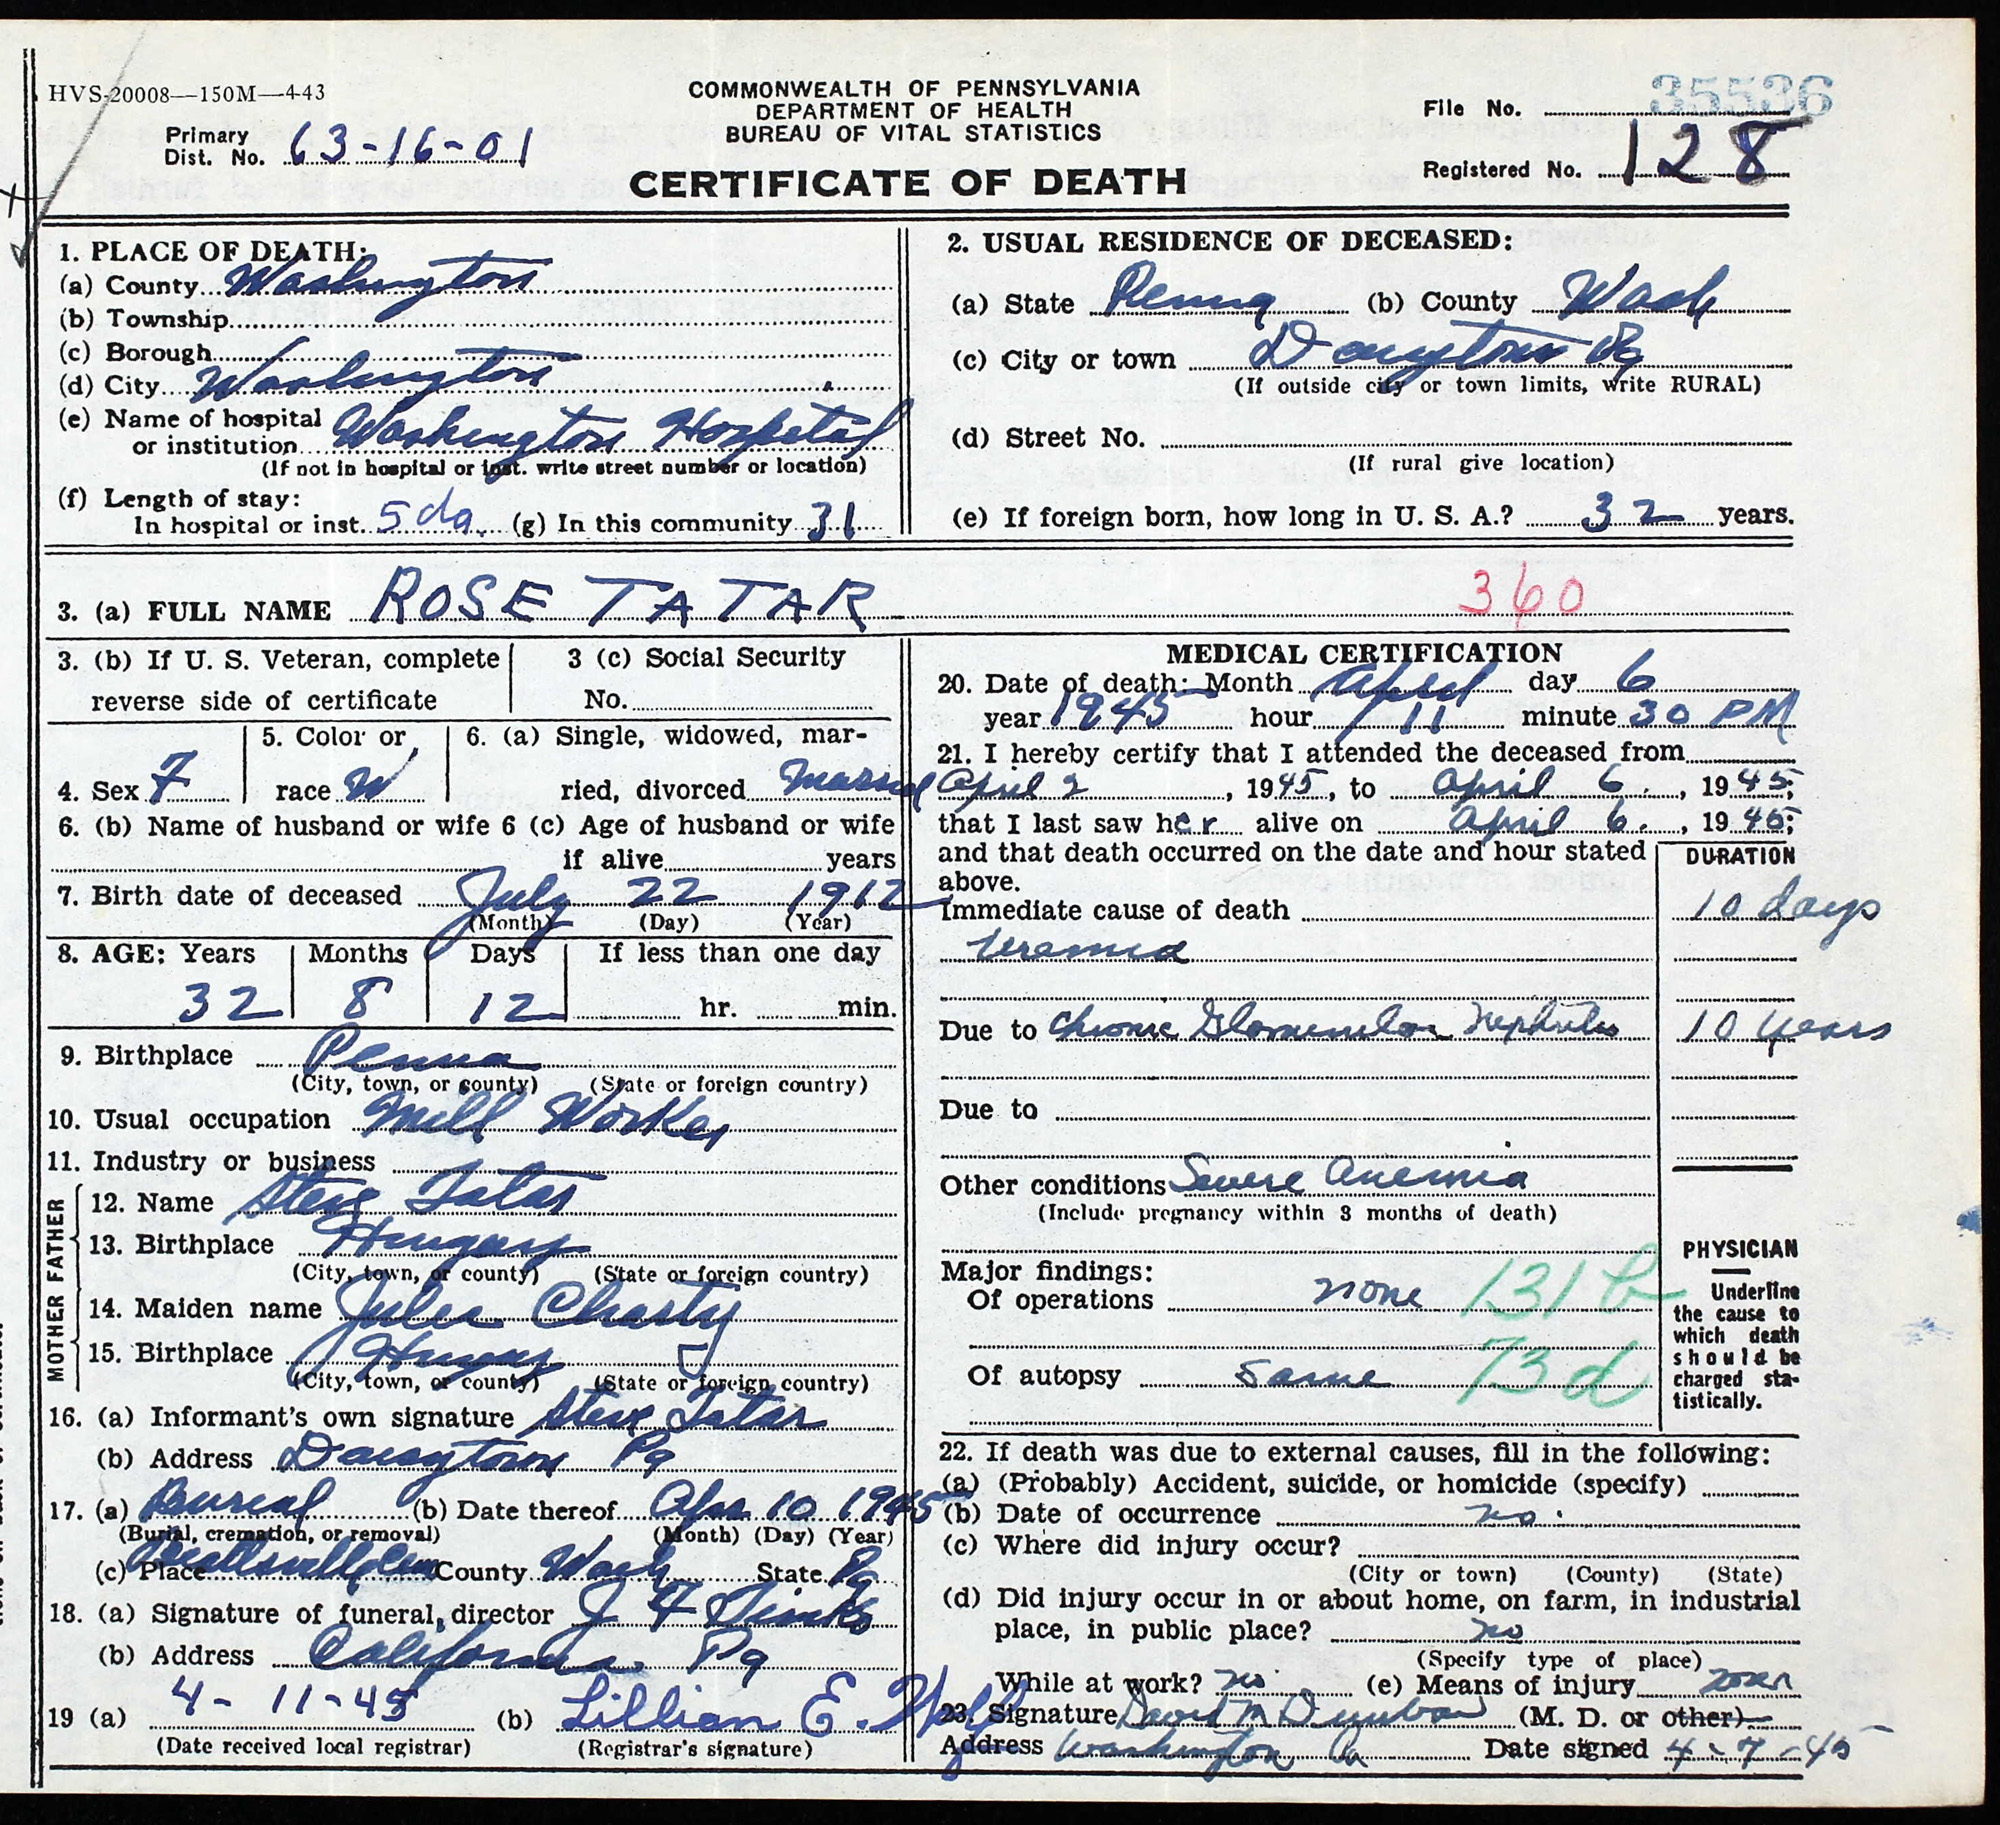 HVS-20008—150M—4-43
COMMONWEALTH OF PENNSYLVANIA
DEPARTMENT OF HEALTH
BUREAU OF VITAL STATISTICS
CERTIFICATE OF DEATH
Primary
Dist. No. 63-16-01
File No. 35536
Registered No. 128
1. PLACE OF DEATH:
(a) County Washington
(b) Township
(c) Borough
(d) City Washington
(e) Name of hospital
or institution Washington Hospital
(If not in hospital or inst. write street number or location)
(f) Length of stay:
In hospital or inst. 5 da. (g) In this community 31
2. USUAL RESIDENCE OF DECEASED:
(a) State Penna (b) County Wash
(c) City or town Daisytown Pa
(If outside city or town limits, write RURAL)
(d) Street No.
(If rural give location)
(e) If foreign born, how long in U. S. A.? 32 years.
3. (a) FULL NAME ROSE TATAR 360
3. (b) If U. S. Veteran, complete
reverse side of certificate
3 (c) Social Security
No.
4. Sex F
5. Color or
race W
6. (a) Single, widowed, mar-
ried, divorced Married
6. (b) Name of husband or wife 6 (c) Age of husband or wife
if alive years
7. Birth date of deceased July 22 1912
(Month) (Day) (Year)
8. AGE: Years Months Days If less than one day
32 8 12 hr. min.
9. Birthplace Penna
(City, town, or county) (State or foreign country)
10. Usual occupation Mill Worker
11. Industry or business
FATHER
12. Name Steve Tatar
13. Birthplace Hungary
(City, town, or county) (State or foreign country)
MOTHER
14. Maiden name Julia Chasty
15. Birthplace Hungary
(City, town, or county) (State or foreign country)
16. (a) Informant's own signature Steve Tatar
(b) Address Daisytown Pa
17. (a) Burial (b) Date thereof Apr 10 1945
(Burial, cremation, or removal) (Month) (Day) (Year)
(c) Place Beallsville Cem County Wash State Pa
18. (a) Signature of funeral director J F
(b) Address California Pa
19 (a) 4-11-45 (b) Lillian E. Wolf
(Date received local registrar) (Registrar's signature)
MEDICAL CERTIFICATION
20. Date of death: Month April day 6
year 1945 hour 11 minute 30 PM
21. I hereby certify that I attended the deceased from
April 2, 1945, to April 6, 1945;
that I last saw her alive on April 6, 1945;
and that death occurred on the date and hour stated
above.
DURATION
Immediate cause of death 10 days
Uremia
Due to Chronic Glomerular Nephritis 10 years
Due to
Other conditions Severe Anemia
(Include pregnancy within 3 months of death)
Major findings:
Of operations none 131 b
Of autopsy same 73 d
PHYSICIAN
Underline
the cause to
which death
should be
charged sta-
tistically.
22. If death was due to external causes, fill in the following:
(a) (Probably) Accident, suicide, or homicide (specify)
(b) Date of occurrence no.
(c) Where did injury occur?
(City or town) (County) (State)
(d) Did injury occur in or about home, on farm, in industrial
place, in public place? no
(Specify type of place)
While at work? no. (e) Means of injury
23. Signature David M (M. D. or other)
Address Washington Pa Date signed 4-7-45